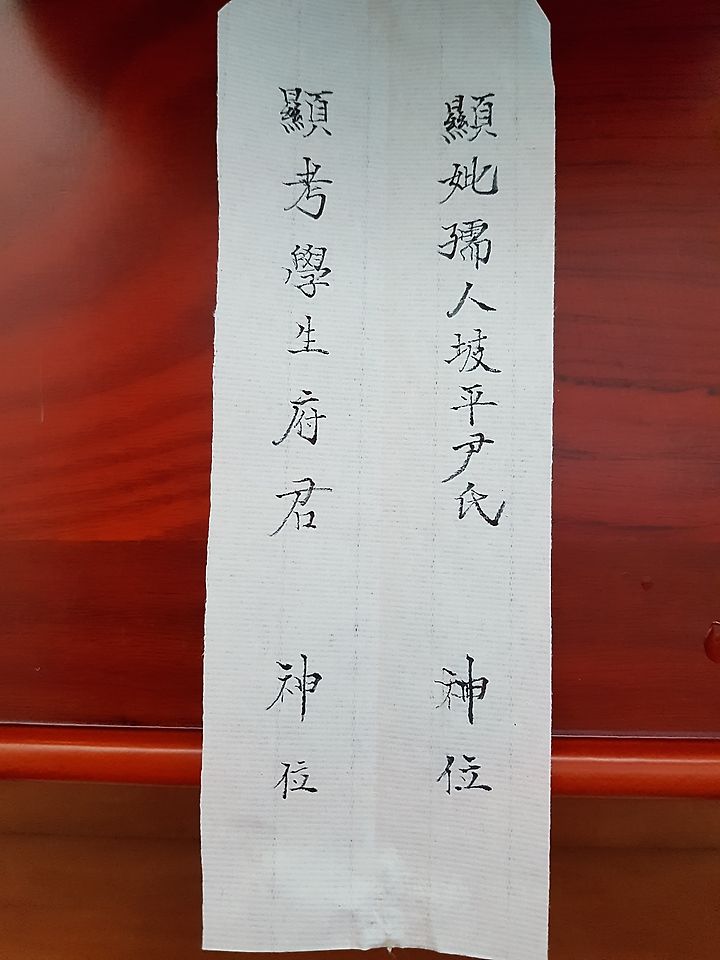 顯妣孺人坡平尹氏 神位
顯考學生府君 神位